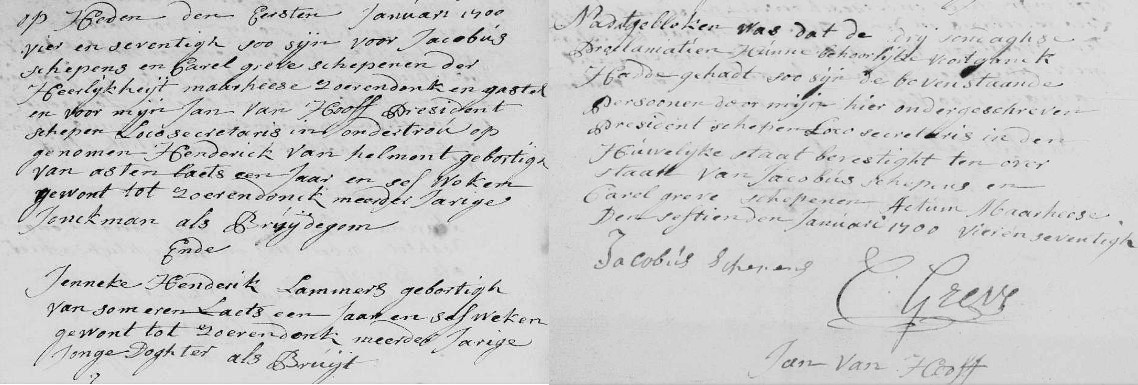 op Heden den Eersten Januari 1700
vier en seventigh soo sijn voor Jacobus
schepens en Carel greve schepenen der
Heerlijkheijt maarheese Zoerendonk en gastel
en voor mijn Jan van Hooff President
schepen Loco secretaris in ondertrou op
genomen Henderick van helmont gebortigh
van asten Laets een Jaar en ses Woken
gewont tot Zoerendonck meerder Jarige
Jonckman als Bruijdegom
Ende
Jenneke Henderik Lammers gebortigh
van someren Laets een Jaar en ses Weken
gewont tot Zoerendonk meerder Jarige
Jonge Doghter als Bruijt
Naatgebloken was dat de drij sondaghse
Proclamatien Hunne behoorlijke voortganck
Hadde gehadt soo sijn de bovenstaande
Persoonen door mijn hier ondergeschreven
President schepen Loco secretaris in den
Huwelijke staat bevestight ten over
staan van Jacobus schepens en
Carel greve schepenen Actum Maarheese
Den seftienden Januari 1700 vier en seventigh
Jacobus Schepens
C. Greve
Jan van Hooff